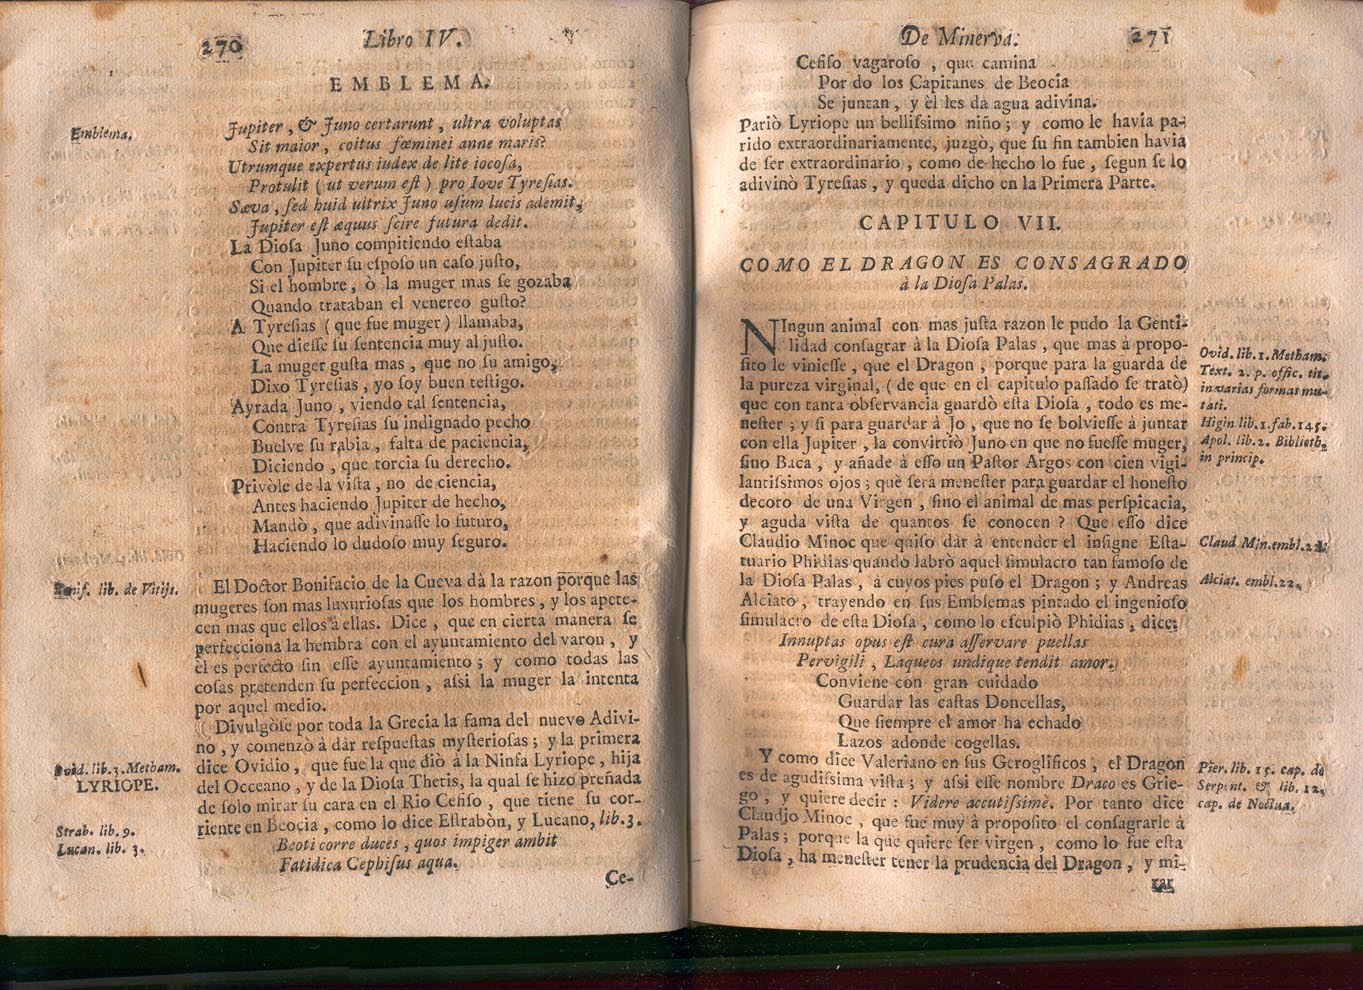 270
Libro IV.
EMBLEMA.
Emblema.
Jupiter, & Juno certarunt, ultra voluptas
Sit maior, coitus fœminei anne maris?
Utrumque expertus iudex de lite iocoſa,
Protulit ( ut verum eſt ) pro Iove Tyreſias.
Sæva, ſed huid ultrix Juno uſum lucis ademit;
Jupiter eſt æquus ſcire futura dedit.
La Dioſa Juno compitiendo eſtaba
Con Jupiter ſu eſpoſo un caſo juſto,
Si el hombre, ò la muger mas ſe gozaba
Quando trataban el venereo guſto?
A Tyreſias ( que fue muger ) llamaba,
Que dieſſe ſu ſentencia muy al juſto.
La muger guſta mas, que no ſu amigo,
Dixo Tyreſias, yo ſoy buen teſtigo.
Ayrada Juno, viendo tal ſentencia,
Contra Tyreſias ſu indignado pecho
Buelve ſu rabia, falta de paciencia,
Diciendo, que torcia ſu derecho.
Privòle de la viſta, no de ciencia,
Antes haciendo Jupiter de hecho,
Mandò, que adivinaſſe lo futuro,
Haciendo lo dudoſo muy ſeguro.
Bonif. lib. de Vitijs.
El Doctor Bonifacio de la Cueva dà la razon porque las
mugeres ſon mas luxurioſas que los hombres, y los apete-
cen mas que ellos à ellas. Dice, que en cierta manera ſe
perfecciona la hembra con el ayuntamiento del varon, y
èl es perfecto ſin eſſe ayuntamiento; y como todas las
coſas pretenden ſu perfeccion, aſsi la muger la intenta
por aquel medio.
Divulgòſe por toda la Grecia la fama del nuevo Adivi-
no, y comenzò à dàr reſpueſtas myſterioſas; y la primera
dice Ovidio, que fue la que diò à la Ninfa Lyriope, hija
del Occeano, y de la Dioſa Thetis, la qual ſe hizo preñada
de ſolo mirar ſu cara en el Rio Cefiſo, que tiene ſu cor-
riente en Beocia, como lo dice Eſtrabòn, y Lucano, lib. 3.
Ovid. lib. 3. Metham.
LYRIOPE.
Strab. lib. 9.
Lucan. lib. 3.
Beoti corre duces, quos impiger ambit
Fatidica Cephiſus aqua.
Ce-
De Minerva.
271
Cefiſo vagaroſo, que camina
Por do los Capitanes de Beocia
Se juntan, y èl les dà agua adivina.
Pariò Lyriope un belliſsimo niño; y como le havia pa-
rido extraordinariamente, juzgò, que ſu fin tambien havia
de ſer extraordinario, como de hecho lo fue, ſegun ſe lo
adivinò Tyreſias, y queda dicho en la Primera Parte.
CAPITULO VII.
COMO EL DRAGON ES CONSAGRADO
à la Dioſa Palas.
NIngun animal con mas juſta razon le pudo la Genti-
lidad conſagrar à la Dioſa Palas, que mas à propo-
ſito le vinieſſe, que el Dragon, porque para la guarda de
la pureza virginal, ( de que en el capitulo paſſado ſe tratò)
que con tanta obſervancia guardò eſta Dioſa, todo es me-
neſter; y ſi para guardar à Jo, que no ſe bolvieſſe à juntar
con ella Jupiter, la convirtiò Juno en que no fueſſe muger,
ſino Baca, y añade à eſſo un Paſtor Argos con cien vigi-
lantiſsimos ojos; què ſerà meneſter para guardar el honeſto
decoro de una Virgen, ſino el animal de mas perſpicacia,
y aguda viſta de quantos ſe conocen? Que eſſo dice
Claudio Minoc que quiſo dàr à entender el inſigne Eſta-
tuario Phidias quando labrò aquel ſimulacro tan famoſo de
la Dioſa Palas, à cuyos pies puſo el Dragon; y Andreas
Alciato, trayendo en ſus Emblemas pintado el ingenioſo
ſimulacro de eſta Dioſa, como lo eſculpiò Phidias, dice:
Ovid. lib. 1. Metham.
Text. 2. p. offic. tit.
in varias formas mu-
tati.
Higin lib. 1. fab. 145.
Apol. lib. 2. Biblioth.
in princip.
Claud Min. embl. 22.
Alciat. embl. 22.
Innuptas opus eſt cura aſſervare puellas
Pervigili, Laqueos undique tendit amor.
Conviene con gran cuidado
Guardar las caſtas Doncellas,
Que ſiempre el amor ha echado
Lazos adonde cogellas.
Y como dice Valeriano en ſus Geroglificos, el Dragon
es de agudiſsima viſta; y aſsi eſſe nombre Draco es Grie-
go, y quiere decir: Videre accutiſsimè. Por tanto dice
Claudio Minoc, que fue muy à propoſito el conſagrarle à
Palas; porque la que quiere ſer virgen, como lo fue eſta
Dioſa, ha meneſter tener la prudencia del Dragon, y mi-
Pier. lib. 15. cap. de
Serpent. & lib. 12.
cap. de Noctua.
rar